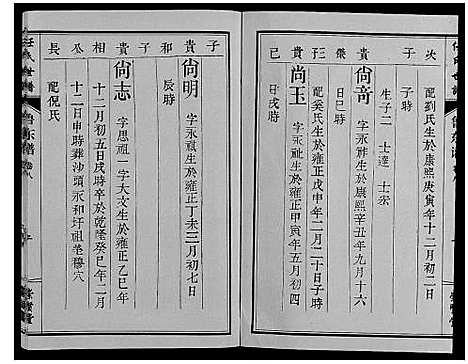 子時
配劉氏生於康熙庚寅年十二月初二日
生子二 士達
尚奇 字永禎生於康熙辛丑年九月十六
日巳時
配奚氏生於雍正戊申年二月二十日子時
尚玉 字永祉生於雍正甲寅年五月初四
日戌時
子
尚明 字永禎生於雍正丁未三月初七
辰時
尚志 字思祖一字大文生於雍正乙巳年
十二月初五日戌時卒於乾隆癸巳年二月
十二日申時葬沙頭永和圩祖塋穆穴
配倪氏
任氏世譜